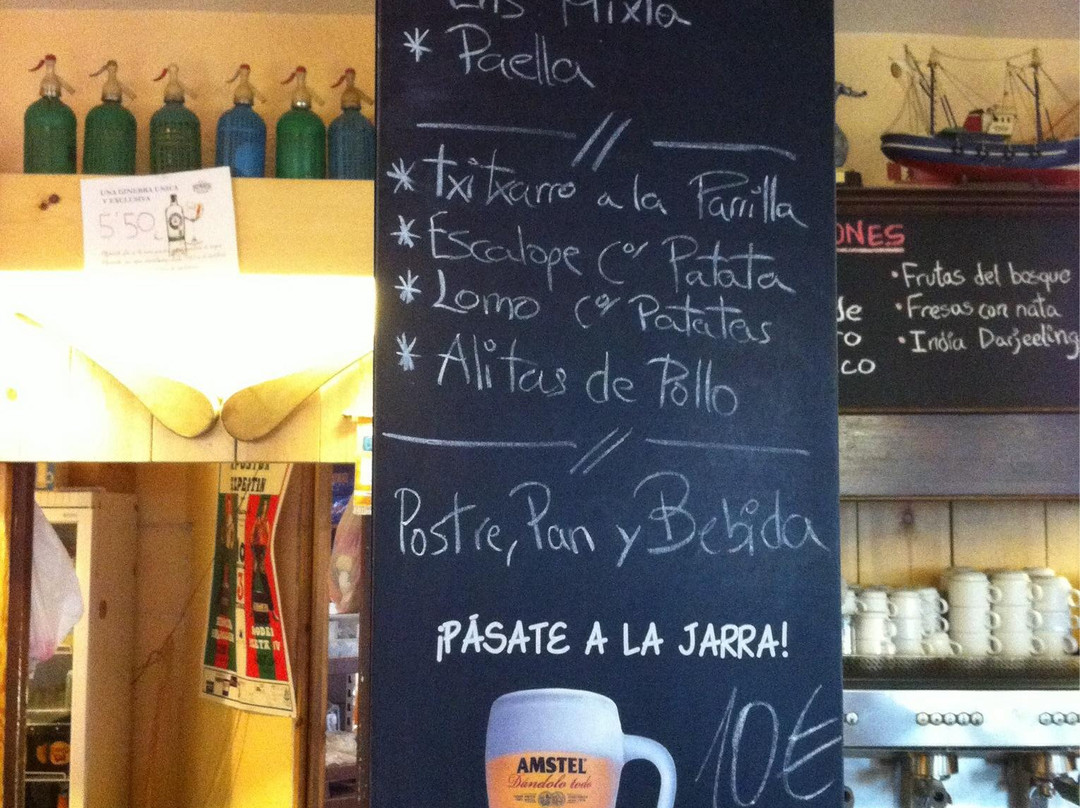 Mixta
* Paella
* Txitxarro a la Parrilla
* Escalope c/ Patata
* Lomo c/ Patatas
* Alitas de Pollo
Postre, Pan y Bebida
¡PÁSATE A LA JARRA!
10€
AMSTEL
Dándolo todo
UNA GINEBRA UNICA
Y EXCLUSIVA
5'50€
ONES
• Frutas del bosque
• Fresas con nata
• India Darjeeling
CO